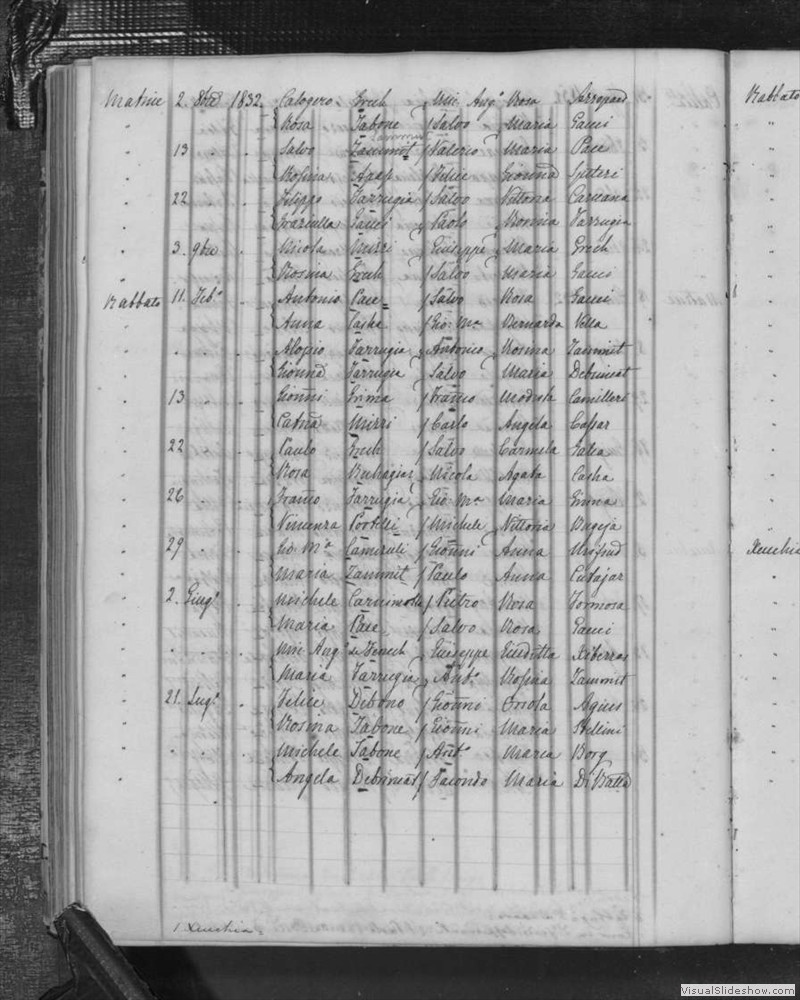 Matrice 2. 8bre 1832. Calogero Grech Mic. Ang.o Rosa Rabbato
Rosa Tabone Salvo Maria Gauci
13 Salvo Zammit Valerio Maria Pace
Rosina Apap Felice Gionna Spiteri
22 Filippo Farrugia Salvo Vittoria Caruana
Graziulla Gauci Paolo Rosina Farrugia
3. 9bre Nicola Mizzi Giuseppe Maria Grech
Rosina Grech Salvo Maria Gauci
Rabbato 11. Feb.o Antonio Pace Salvo Rosa Gauci
Anna Casha Gio: Ma Bernarda Vella
Aloysio Farrugia Antonio Rosina Zammit
Gionna Farrugia Salvo Maria Debrincat
13 Gionni Grima Franco Modesta Camilleri
Catna Mizzi Carlo Angela Cassar
22 Paulo Grech Salvo Carmela Galea
Rosa Buhagiar Nicola Agata Casha
26 Franco Farrugia Gio: Ma Maria Grima
Vincenza Portelli Michele Vittoria Bugeja
29 Gio: Ma Gionni Anna Xeuchia
Maria Zammit Paulo Anna Cutajar
2. Giug.o Michele Pietro Rosa Formosa
Maria Pace Salvo Rosa Gauci
Mic: Ang.o Giuseppe Xiberras
Maria Farrugia Ant.o Rosina Zammit
21. Lug.o Felice Debono Gionni Orsola Agius
Rosina Tabone Gionni Maria Stellini
Michele Tabone Ant.o Maria Borg
Angela Debrincat Facondo Maria Di Batta
1. Xeuchia
VisualSlideshow.com